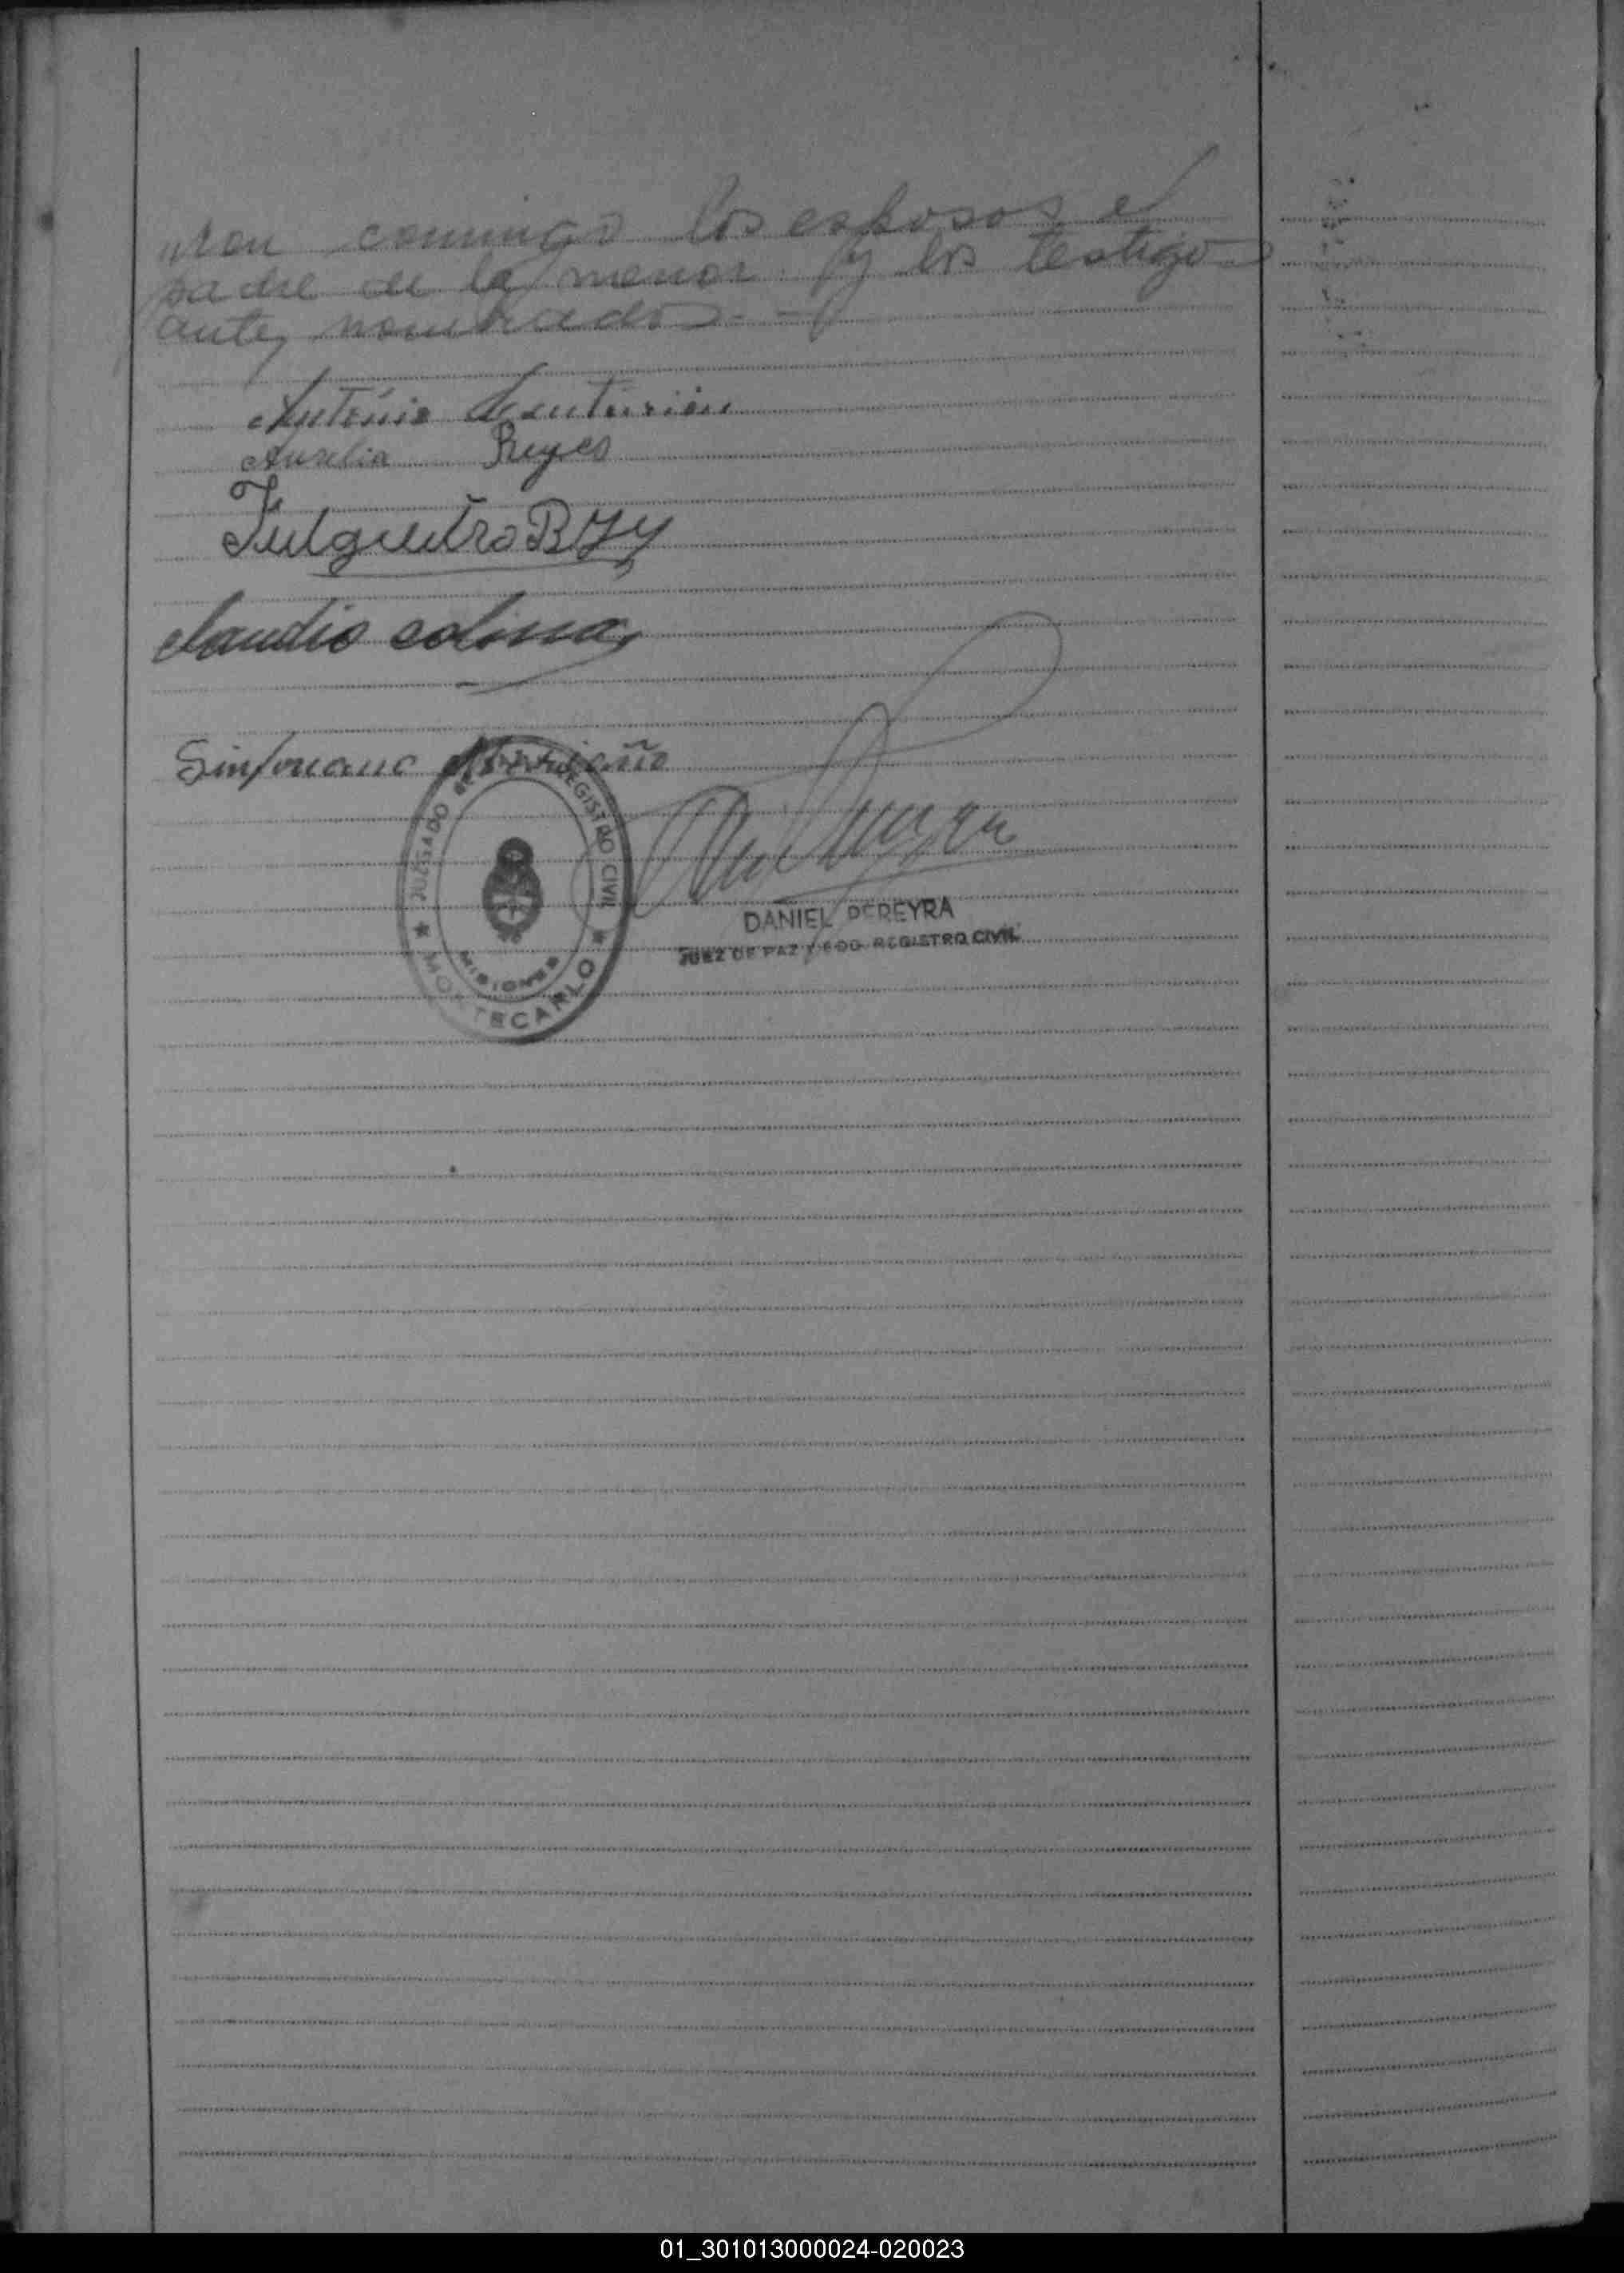 maron conmigo los esposos el
padre de la menor y los testigos
antes nombrados.-
Antonio Centurion
Aurelia Reyes
Claudio colina
Sinforiano
JUZGADO DE REGISTRO CIVIL
MISIONES
MONTECARLO
DANIEL PEREYRA
JUEZ DE PAZ Y ENC. REGISTRO CIVIL
01_301013000024-020023